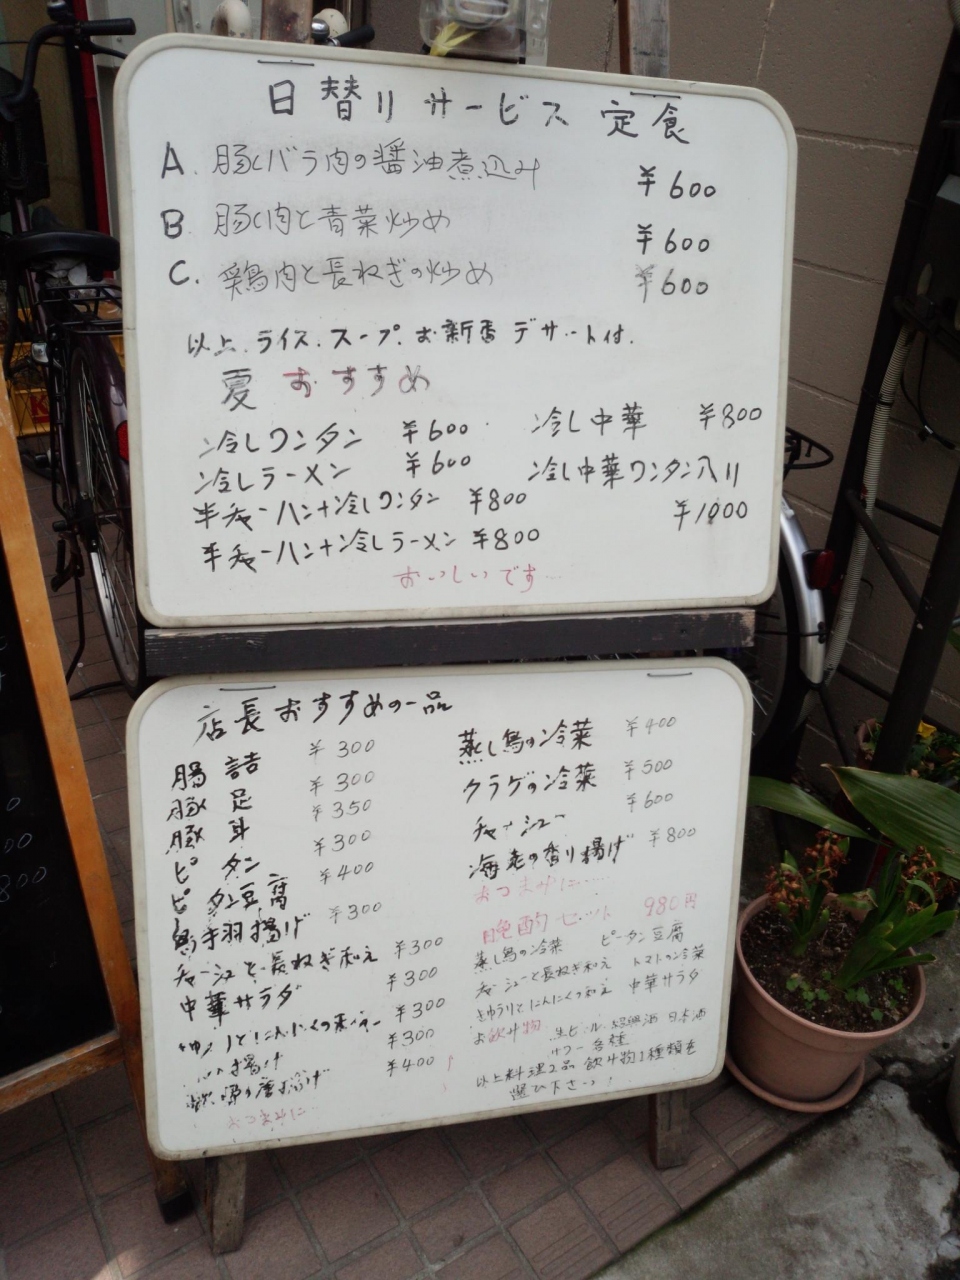 日替りサービス定食
A. 豚バラ肉の醤油煮込み ¥600
B. 豚肉と青菜炒め ¥600
C. 鶏肉と長ねぎの炒め ¥600
以上.ライス.スープ.お新香 デザート付.
夏 おすすめ
冷しワンタン ¥600
冷しラーメン ¥600
半チャーハン+冷しワンタン ¥800
半チャーハン+冷しラーメン ¥800
冷し中華 ¥800
冷し中華ワンタン入り
¥1000
おいしいです…
店長おすすめの一品
腸詰 ¥300
豚足 ¥300
豚耳 ¥350
ピータン ¥300
ピータン豆腐 ¥400
手羽揚げ ¥300
チャーシューと長ねぎ和え ¥300
中華サラダ ¥300
¥300
¥300
¥400
おつまみに…
蒸し鳥の冷菜 ¥400
クラゲの冷菜 ¥500
チャーシュー ¥600
海老の香り揚げ ¥800
おつまみに……
晩酌セット 980円
蒸し鳥の冷菜 ピータン豆腐
チャーシューと長ねぎ和え トマトの冷菜
きゅうりとにんにくの和え 中華サラダ
お飲み物 生ビール 紹興酒 日本酒
サワー各種
以上料理2品 飲み物1種類を
選び下さい